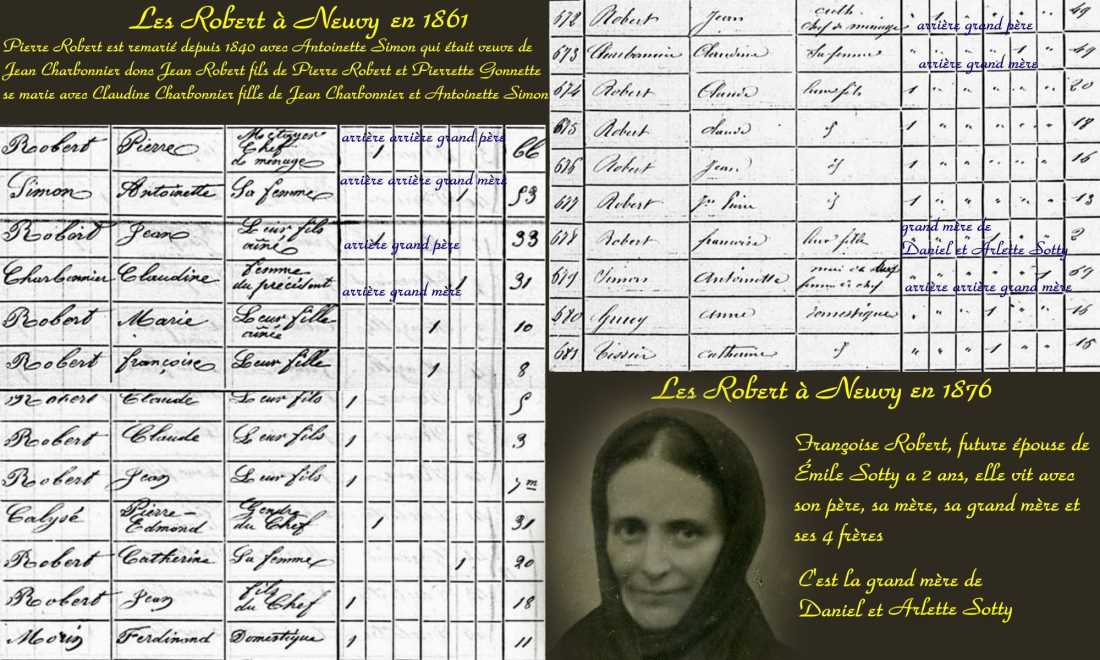 Les Robert à Neuvy en 1861
Pierre Robert est remarié depuis 1840 avec Antoinette Simon qui était veuve de
Jean Charbonnier donc Jean Robert fils de Pierre Robert et Pierrette Gonnette
se marie avec Claudine Charbonnier fille de Jean Charbonnier et Antoinette Simon
Robert Pierre Métayer Chef de ménage arrière arrière grand père 1 66
Simon Antoinette Sa femme arrière arrière grand mère 1 53
Robert Jean Leur fils aîné arrière grand père 33
Charbonnier Claudine femme du précédent arrière grand mère 1 31
Robert Marie Leur fille aînée 1 10
Robert françoise Leur fille 1 8
Robert Claude Leur fils 1 5
Robert Claude Leur fils 1 3
Robert Jean Leur fils 1
Calysé Pierre-Edmond Gendre du Chef 1 31
Robert Catherine Sa femme 1 20
Robert Jean fils du Chef 1 18
Morin Ferdinand Domestique 1 11
672 Robert Jean cult. chef de ménage arrière grand père 49
673 Charbonnier Claudine Sa femme 1 arrière grand mère 49
674 Robert Claude leur fils 1 20
675 Robert claude 1 18
676 Robert Jean 1 16
677 Robert 1 13
678 Robert francoise leur fille grand mère de Daniel et Arlette Sotty 2
679 Simon Antoinette 1 arrière arrière grand mère 69
680 anne domestique 1
681 Tissier catherine 1
Les Robert à Neuvy en 1876
Françoise Robert, future épouse de
Émile Sotty a 2 ans, elle vit avec
son père, sa mère, sa grand mère et
ses 4 frères
C'est la grand mère de
Daniel et Arlette Sotty